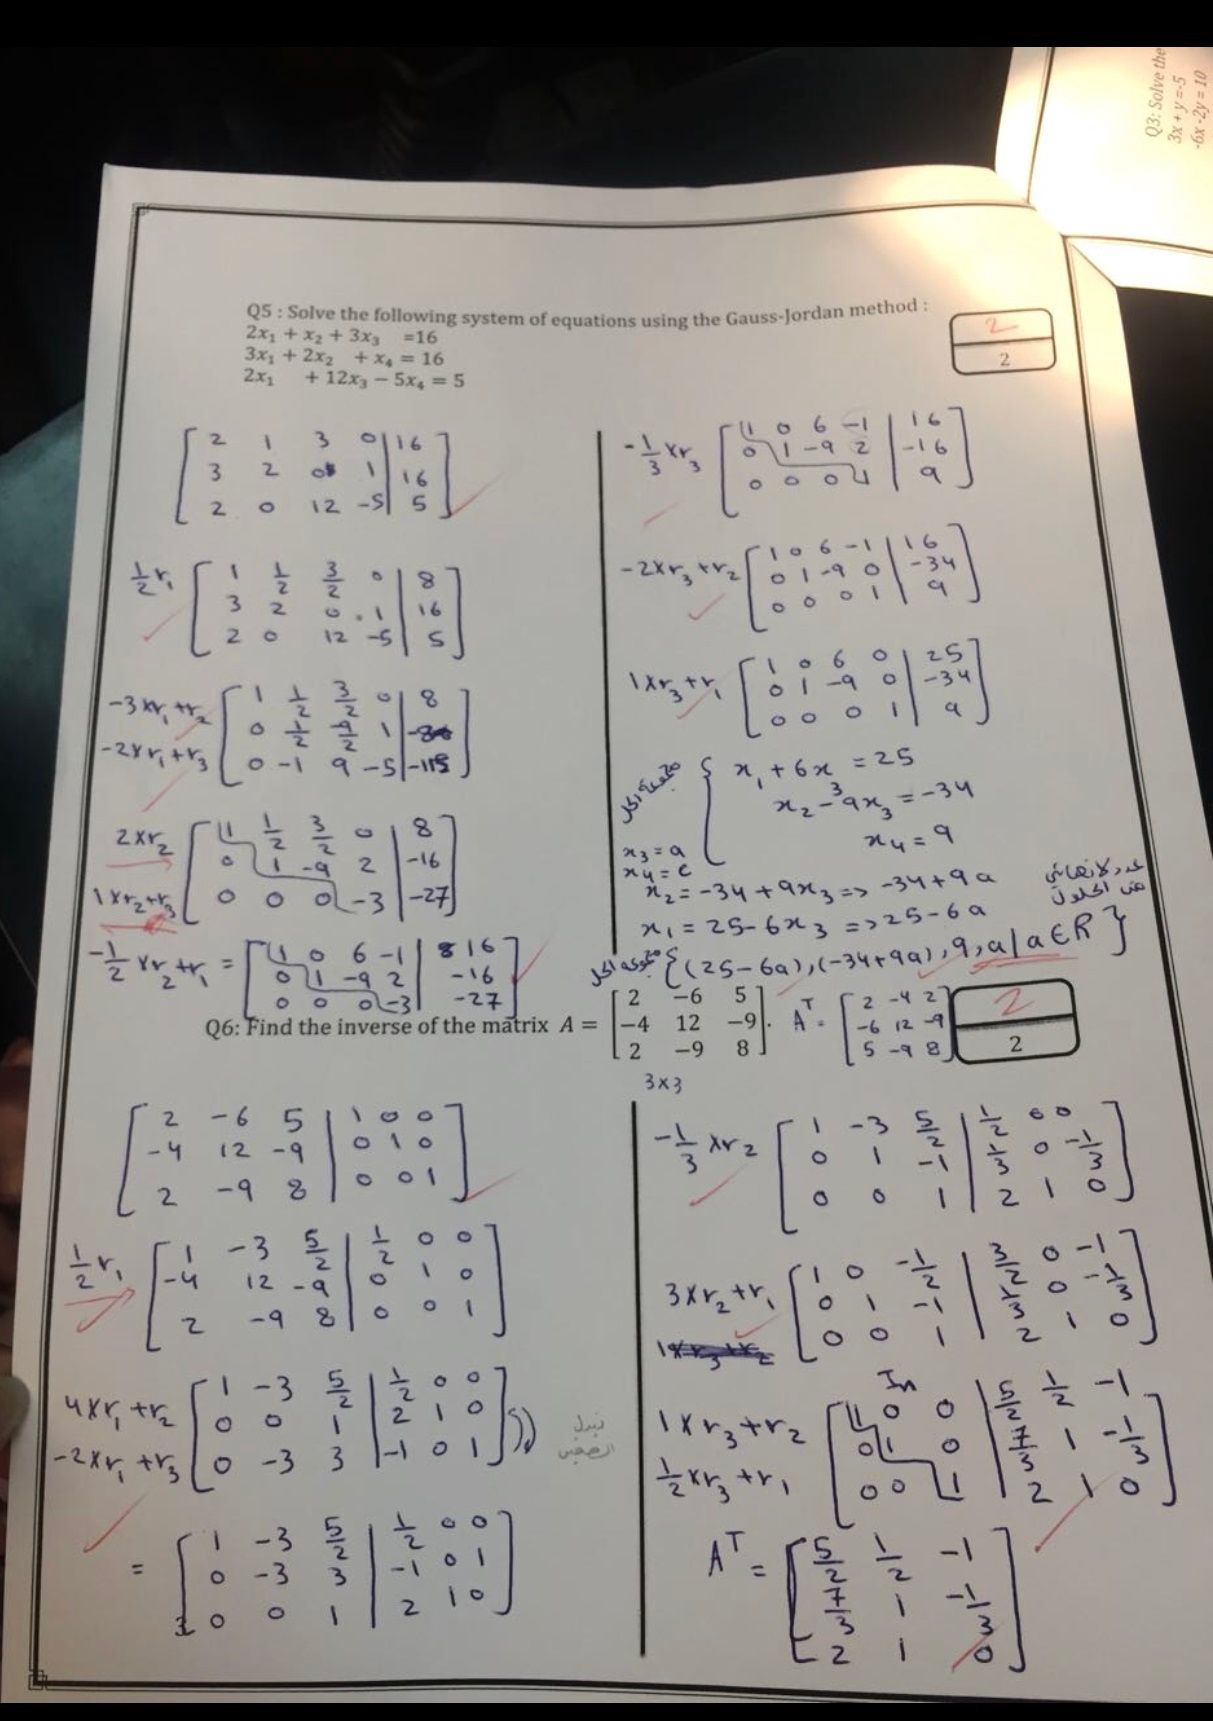 Q3: Solve the
3x + y = -5
-6x -2y = 10
Q5 : Solve the following system of equations using the Gauss-Jordan method :
2x₁ + x₂ + 3x₃ =16
3x₁ + 2x₂ + x₄ = 16
2x₁ + 12x₃ − 5x₄ = 5
2
2
2 1 3 0 | 16
3 2 0 1 | 16
2 0 12 -5 | 5
1/2 r₁
1 1/2 3/2 0 | 8
3 2 0 1 | 16
2 0 12 -5 | 5
-3×r₁+r₂
-2×r₁+r₃
1 1/2 3/2 0 | 8
0 1/2 -9/2 1
0 -1 9 -5 | -11
2×r₂
1×r₂+r₃
1 1/2 3/2 0 | 8
0 1 -9 2 | -16
0 0 0 -3 | -27
-1/2 ×r₂+r₁ =
1 0 6 -1 | 16
0 1 -9 2 | -16
0 0 0 -3 | -27
-1/3 ×r₃
1 0 6 -1 | 16
0 1 -9 2 | -16
0 0 0 1 | 9
-2×r₃+r₂
1 0 6 -1 | 16
0 1 -9 0 | -34
0 0 0 1 | 9
1×r₃+r₁
1 0 6 0 | 25
0 1 -9 0 | -34
0 0 0 1 | 9
مجموعة الحل
x₁ + 6x₃ = 25
x₂ - 9x₃ = -34
x₄ = 9
x₃ = a
x₄ = c
x₂ = -34 + 9x₃ => -34+9a
x₁ = 25 - 6x₃ => 25-6a
عدد لانهائي
من الحلول
مجموعة الحل {(25-6a), (-34+9a), 9, a | a∈R}
Q6: Find the inverse of the matrix A =
2 −6 5
−4 12 −9
2 −9 8
.
Aᵀ =
2 -4 2
-6 12 -9
5 -9 8
2
2
3×3
2 -6 5 | 1 0 0
-4 12 -9 | 0 1 0
2 -9 8 | 0 0 1
1/2 r₁
1 -3 5/2 | 1/2 0 0
-4 12 -9 | 0 1 0
2 -9 8 | 0 0 1
4×r₁+r₂
-2×r₁+r₃
1 -3 5/2 | 1/2 0 0
0 0 1 | 2 1 0
0 -3 3 | -1 0 1
نبدل
الصفين
=
1 -3 5/2 | 1/2 0 0
0 -3 3 | -1 0 1
0 0 1 | 2 1 0
-1/3 ×r₂
1 -3 5/2 | 1/2 0 0
0 1 -1 | 1/3 0 -1/3
0 0 1 | 2 1 0
3×r₂+r₁
1 0 -1/2 | 3/2 0 -1
0 1 -1 | 1/3 0 -1/3
0 0 1 | 2 1 0
In
1×r₃+r₂
1/2×r₃+r₁
1 0 0 | 5/2 1/2 -1
0 1 0 | 7/3 1 -1/3
0 0 1 | 2 1 0
Aᵀ =
5/2 1/2 -1
7/3 1 -1/3
2 1 0